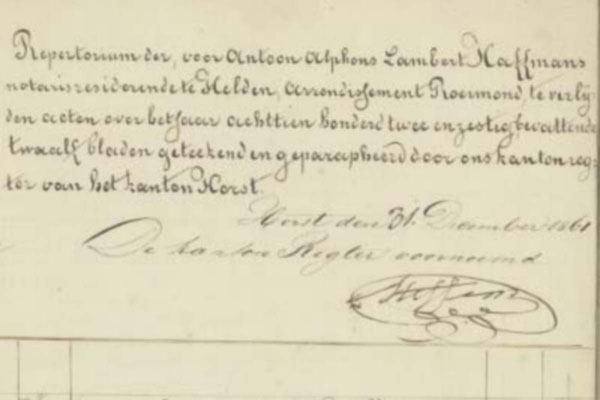 Repertorium der, voor Antoon Alphons Lambert Haffmans
notaris residerende te Helden, Arrondissement Roermond, te verlij
den acten over het Jaar achttien honderd twee en zestig bevattende
twaalf bladen geteekend en geparapheerd door ons kantonreg=
ter van het kanton Horst.
Horst den 31. December 1861
De kanton Regter voornoemd